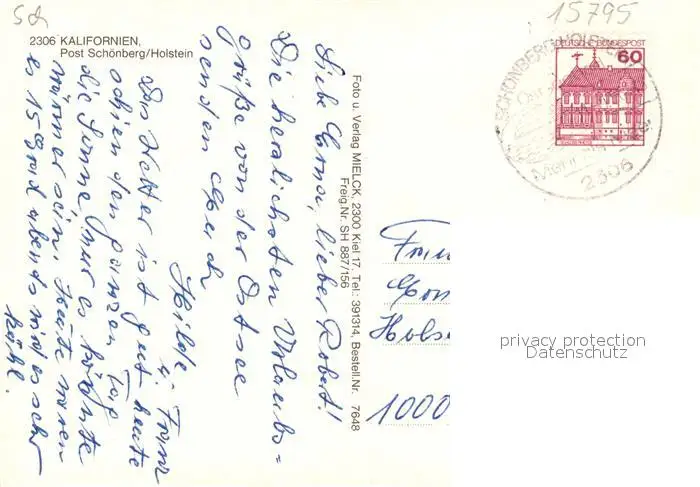 Sch
15795
2306 KALIFORNIEN,
Post Schönberg/Holstein
DEUTSCHE BUNDESPOST
60
SCHÖNBERG HOLSTEIN
2306
Liebe Erna, lieber Robert!
Die herzlichsten Urlaubs=
grüße von der Ostsee
senden Euch
Hilde u. Franz
Das Wetter ist gut heute
schien den ganzen Tag
die Sonne nur es könnte
wärmer sein. Heute waren
es 15 Grad abends wird es sehr
kühl.
Foto u. Verlag MIELCK, 2300 Kiel 17. Tel.: 391314, Bestell.Nr. 7648
Freig.Nr. SH 887/156
Holse
1000
privacy protection
Datenschutz